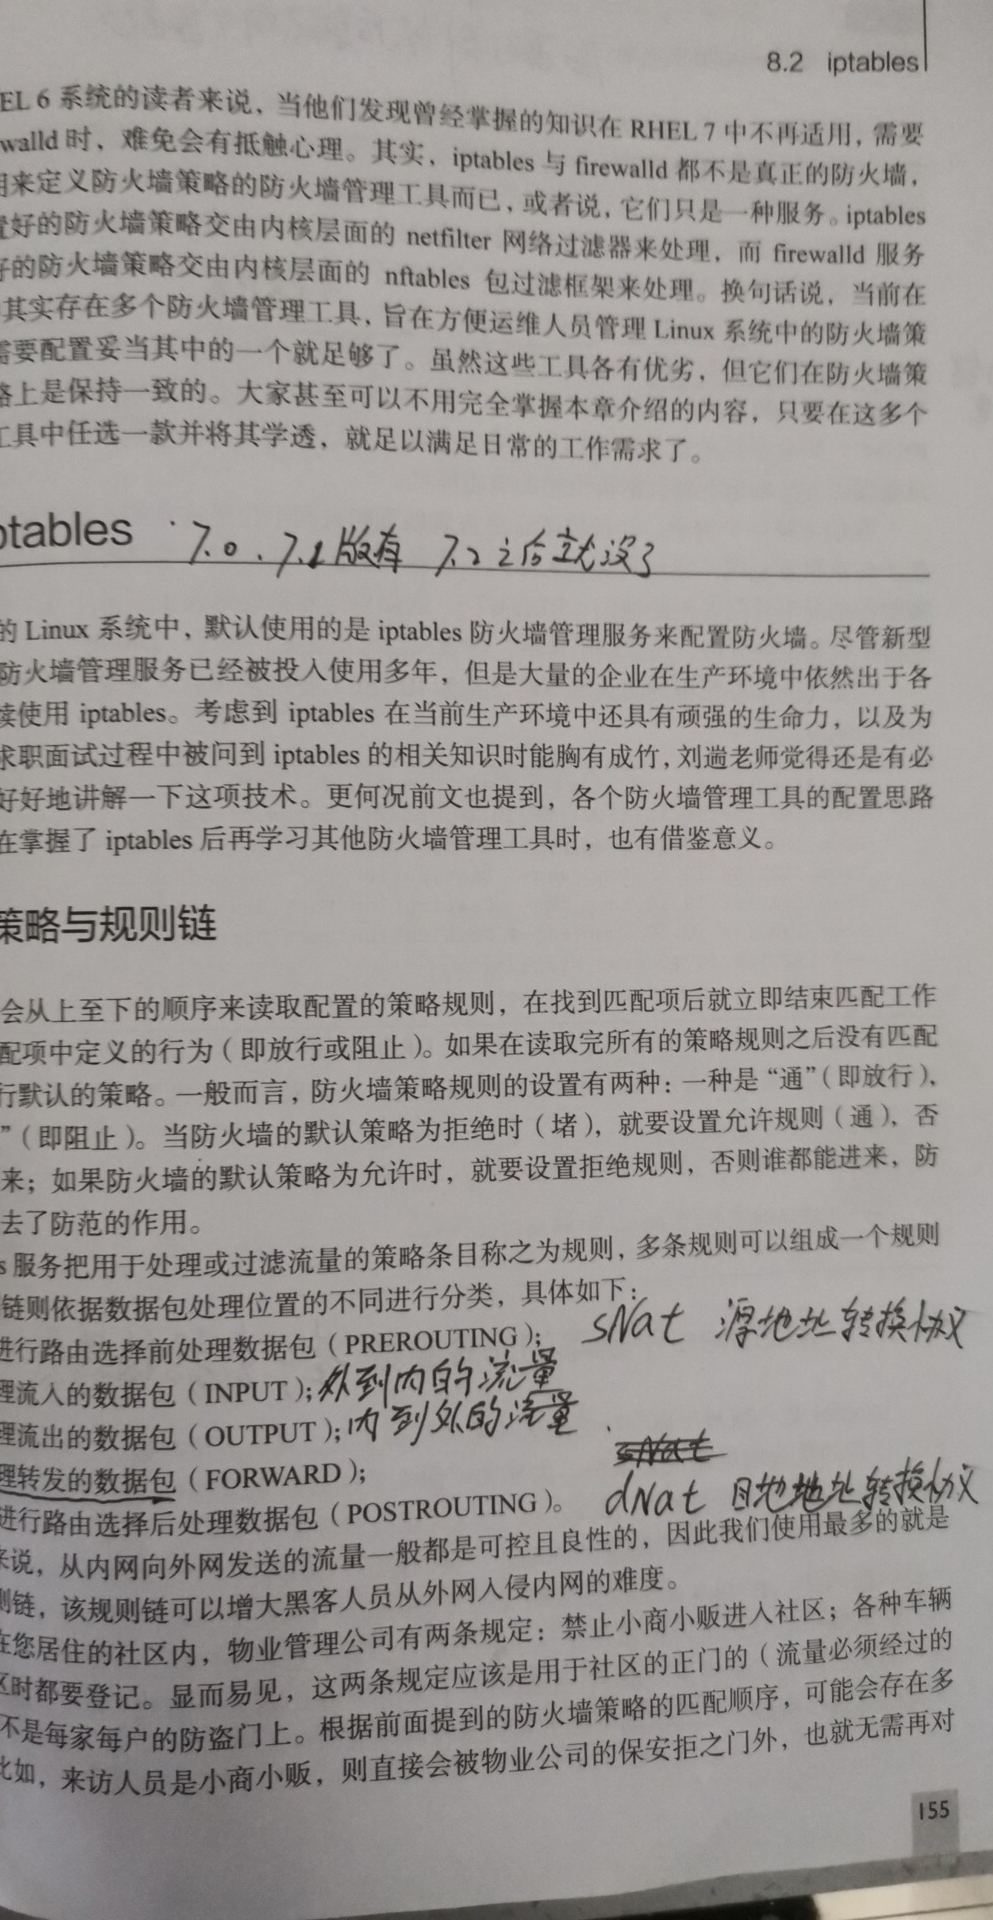 8.2 iptables
EL 6 系统的读者来说，当他们发现曾经掌握的知识在 RHEL 7 中不再适用，需要
walld 时，难免会有抵触心理。其实，iptables 与 firewalld 都不是真正的防火墙，
用来定义防火墙策略的防火墙管理工具而已，或者说，它们只是一种服务。iptables
置好的防火墙策略交由内核层面的 netfilter 网络过滤器来处理，而 firewalld 服务
好的防火墙策略交由内核层面的 nftables 包过滤框架来处理。换句话说，当前在
其实存在多个防火墙管理工具，旨在方便运维人员管理 Linux 系统中的防火墙策
需要配置妥当其中的一个就足够了。虽然这些工具各有优劣，但它们在防火墙策
路上是保持一致的。大家甚至可以不用完全掌握本章介绍的内容，只要在这多个
工具中任选一款并将其学透，就足以满足日常的工作需求了。
ptables 7.0.7.1版有 7.2之后就没了
的 Linux 系统中，默认使用的是 iptables 防火墙管理服务来配置防火墙。尽管新型
防火墙管理服务已经被投入使用多年，但是大量的企业在生产环境中依然出于各
续使用 iptables。考虑到 iptables 在当前生产环境中还具有顽强的生命力，以及为
求职面试过程中被问到 iptables 的相关知识时能胸有成竹，刘遄老师觉得还是有必
好好地讲解一下这项技术。更何况前文也提到，各个防火墙管理工具的配置思路
在掌握了 iptables 后再学习其他防火墙管理工具时，也有借鉴意义。
策略与规则链
会从上至下的顺序来读取配置的策略规则，在找到匹配项后就立即结束匹配工作
配项中定义的行为（即放行或阻止）。如果在读取完所有的策略规则之后没有匹配
行默认的策略。一般而言，防火墙策略规则的设置有两种：一种是“通”（即放行），
”（即阻止）。当防火墙的默认策略为拒绝时（堵），就要设置允许规则（通），否
来；如果防火墙的默认策略为允许时，就要设置拒绝规则，否则谁都能进来，防
去了防范的作用。
s 服务把用于处理或过滤流量的策略条目称之为规则，多条规则可以组成一个规则
链则依据数据包处理位置的不同进行分类，具体如下：
进行路由选择前处理数据包（PREROUTING）； sNat 源地址转换协议
理流入的数据包（INPUT）；外到内的流量
理流出的数据包（OUTPUT）；内到外的流量
sNat
理转发的数据包（FORWARD）；
进行路由选择后处理数据包（POSTROUTING）。 dNat 目地地址转换协议
来说，从内网向外网发送的流量一般都是可控且良性的，因此我们使用最多的就是
则链，该规则链可以增大黑客人员从外网入侵内网的难度。
在您居住的社区内，物业管理公司有两条规定：禁止小商小贩进入社区；各种车辆
区时都要登记。显而易见，这两条规定应该是用于社区的正门的（流量必须经过的
不是每家每户的防盗门上。根据前面提到的防火墙策略的匹配顺序，可能会存在多
比如，来访人员是小商小贩，则直接会被物业公司的保安拒之门外，也就无需再对
155